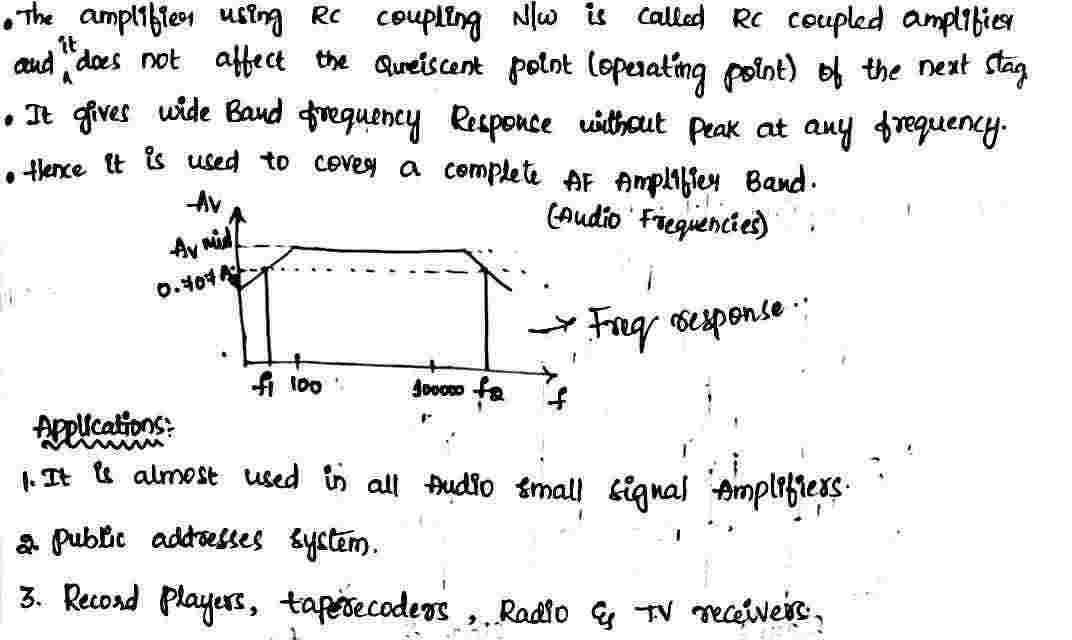 • The amplifier using RC coupling N/w is called RC coupled amplifier
and it does not affect the Queiscent point (operating point) of the next stag
• It gives wide Band frequency Responce without peak at any frequency.
• Hence it is used to cover a complete AF Amplifier Band.
(Audio Frequencies)
Av
Av mid
0.707 A
→ Freq response
f1 100 100000 f2 f
Applications:-
1. It is almost used in all Audio small signal Amplifiers.
2. public addresses system.
3. Record players, taperecoders, Radio & TV receivers.